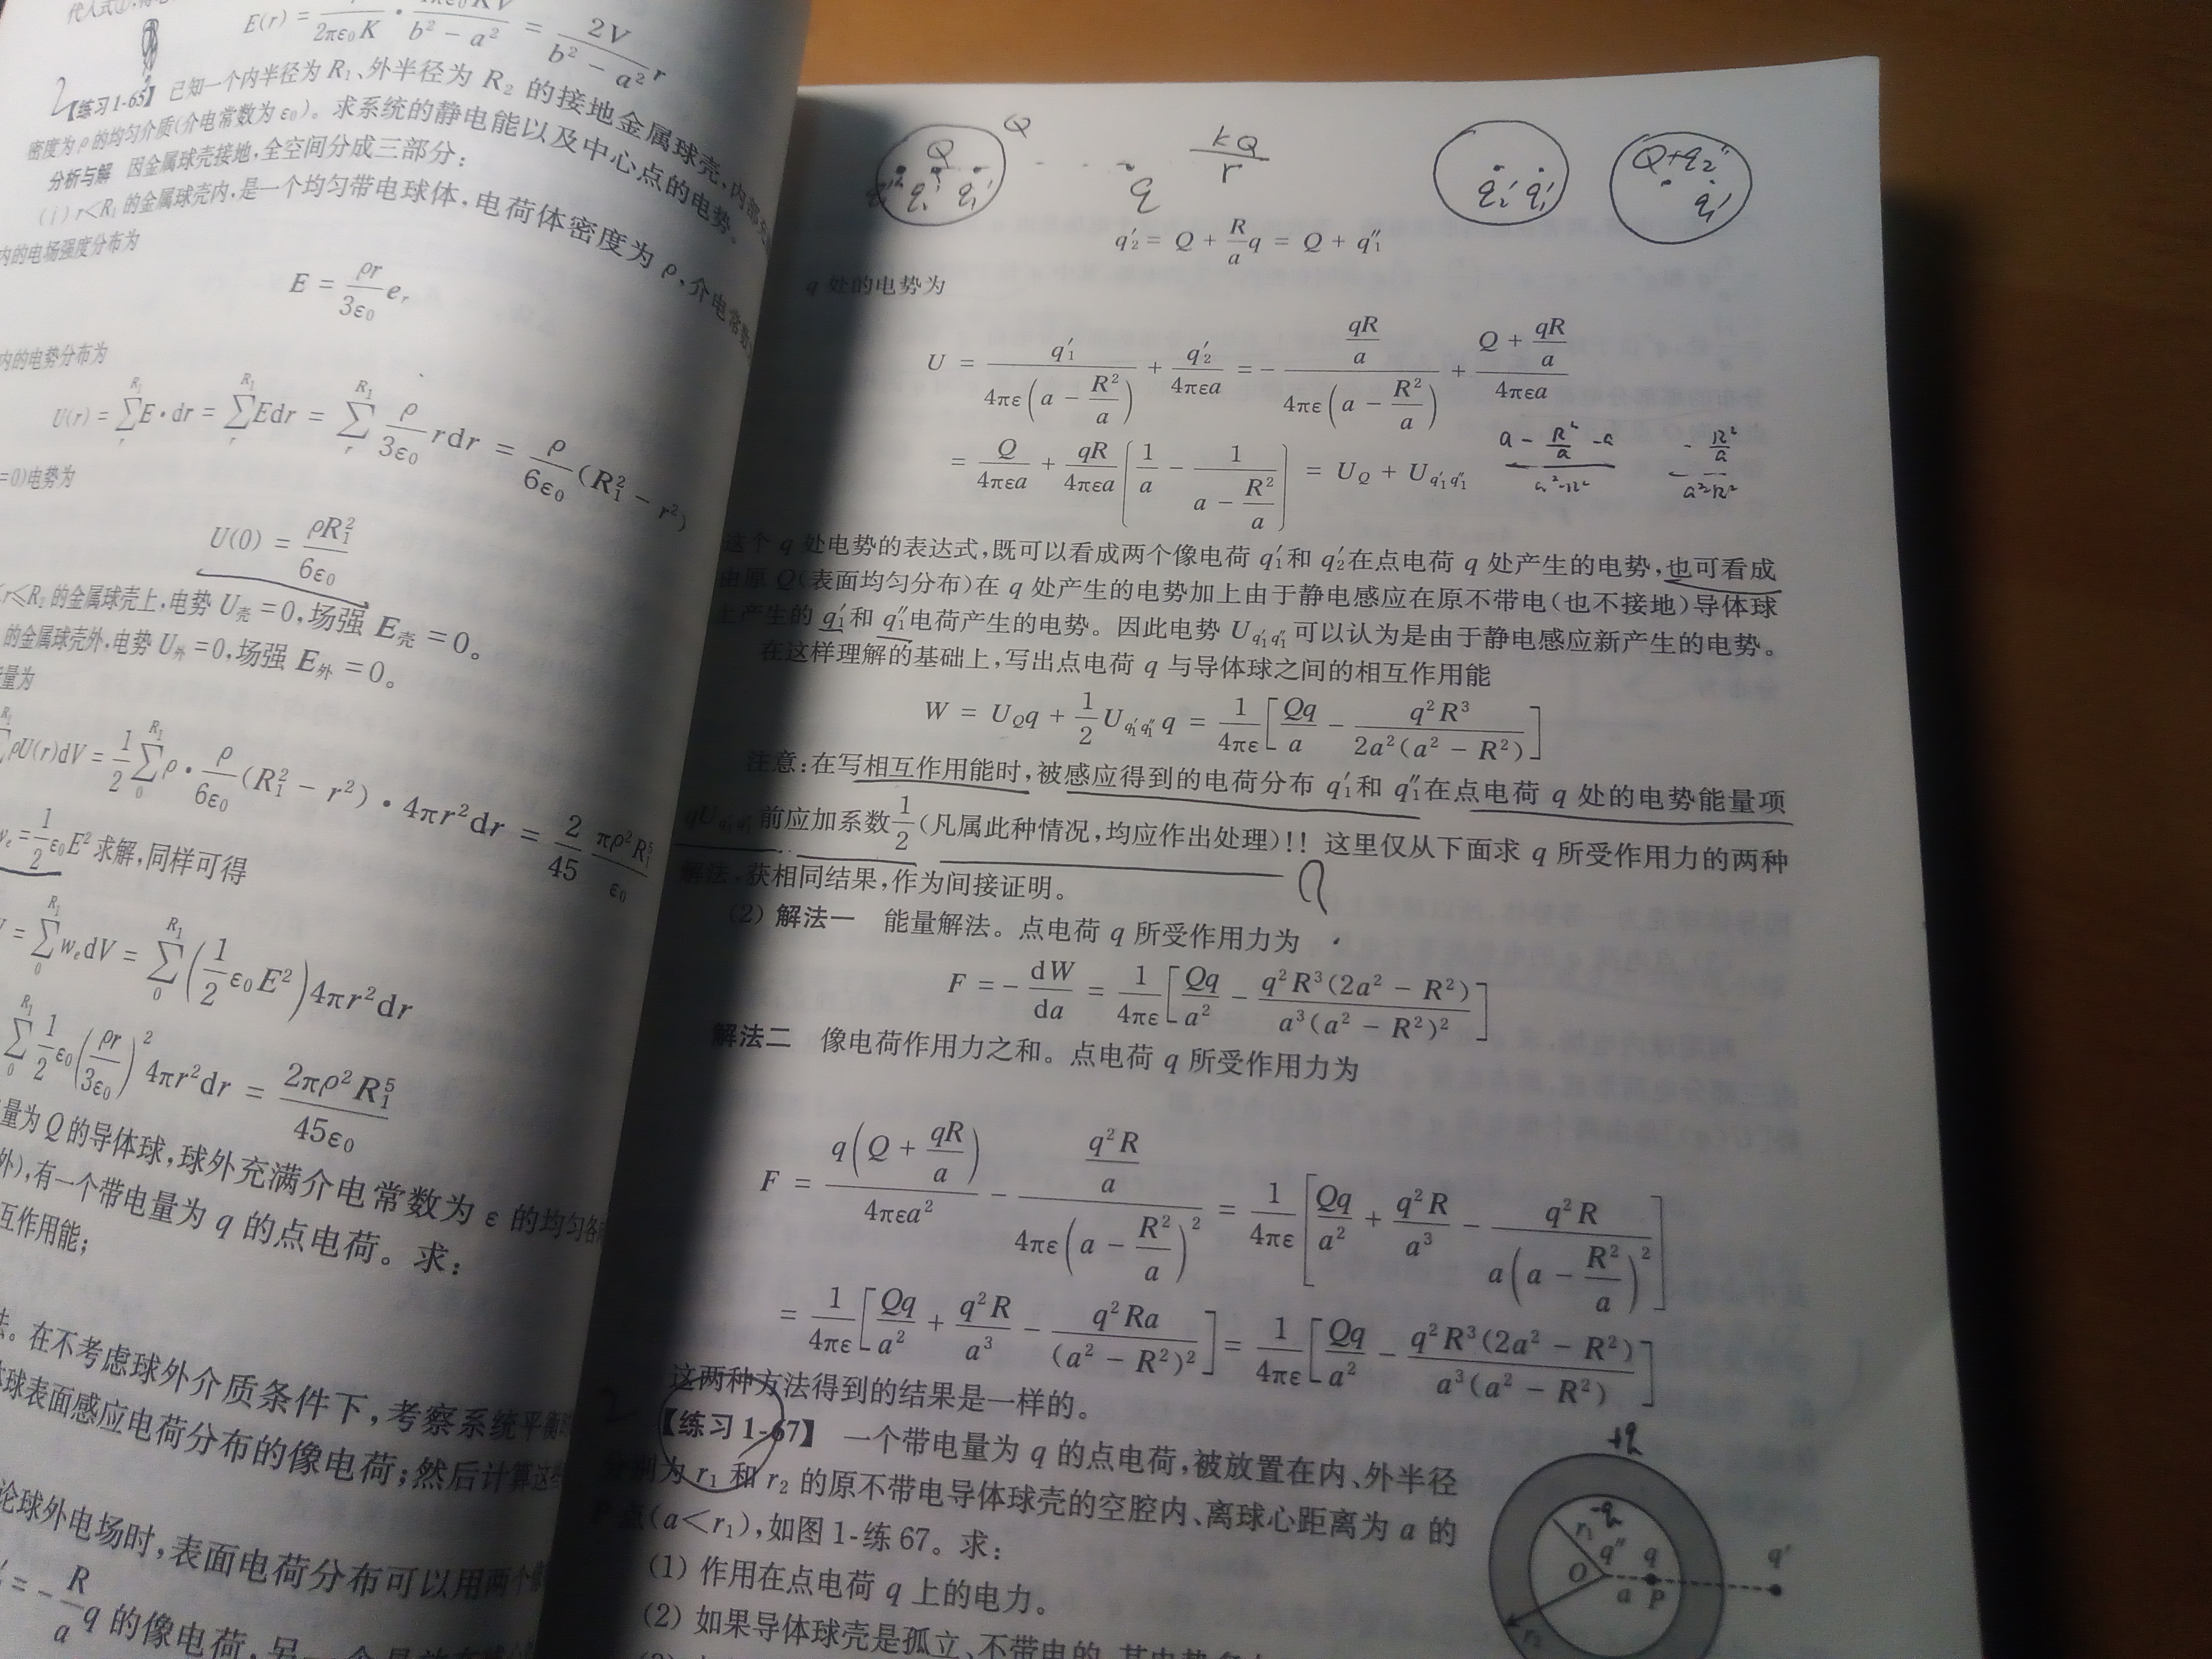 代入式
E(r) = \frac{}{2πε₀K} · \frac{4πε₀KV}{b² − a²} = \frac{2V}{b² − a²} r
2【练习1-65】 已知一个内半径为 R₁、外半径为 R₂ 的接地金属球壳，内部充
密度为 ρ 的均匀介质(介电常数为 ε₀)。求系统的静电能以及中心点的电势。
分析与解 因金属球壳接地，全空间分成三部分：
(i) r<R₁ 的金属球壳内，是一个均匀带电球体，电荷体密度为 ρ，介电常数
内的电场强度分布为
E = \frac{ρr}{3ε₀} e_r
内的电势分布为
U(r) = \sum_{r}^{R₁} E·dr = \sum_{r}^{R₁} Edr = \sum_{r}^{R₁} \frac{ρ}{3ε₀} rdr = \frac{ρ}{6ε₀} (R₁² − r²)
=0)电势为
U(0) = \frac{ρR₁²}{6ε₀}
r≤R₂ 的金属球壳上，电势 U壳 =0，场强 E壳 =0。
的金属球壳外，电势 U外 =0，场强 E外 =0。
量为
ρU(r)dV = \frac{1}{2} \sum_{0}^{R₁} ρ · \frac{ρ}{6ε₀} (R₁² − r²) · 4πr²dr = \frac{2}{45} \frac{πρ²R₁⁵}{ε₀}
w_e = \frac{1}{2} ε₀E² 求解，同样可得
= \sum_{0}^{R₁} w_e dV = \sum_{0}^{R₁} (\frac{1}{2} ε₀E²) 4πr²dr
\sum_{0}^{R₁} \frac{1}{2} ε₀ (\frac{ρr}{3ε₀})² 4πr²dr = \frac{2πρ²R₁⁵}{45ε₀}
量为 Q 的导体球，球外充满介电常数为 ε 的均匀各
外)，有一个带电量为 q 的点电荷。求：
互作用能；
法。在不考虑球外介质条件下，考察系统平衡
球表面感应电荷分布的像电荷；然后计算这些
论球外电场时，表面电荷分布可以用两个像
′ = − \frac{R}{a} q 的像电荷，另一个是
Q
Q
q₁′
q
\frac{kQ}{r}
q₂′ q₁′
Q+q₂″
q₁′
q₂′ = Q + \frac{R}{a} q = Q + q₁″
q 处的电势为
U = \frac{q₁′}{4πε(a − \frac{R²}{a})} + \frac{q₂′}{4πεa} = − \frac{\frac{qR}{a}}{4πε(a − \frac{R²}{a})} + \frac{Q + \frac{qR}{a}}{4πεa}
= \frac{Q}{4πεa} + \frac{qR}{4πεa} [\frac{1}{a} − \frac{1}{a − \frac{R²}{a}}] = U_Q + U_{q₁′q₁″}
\frac{a − \frac{R²}{a} − a}{a²−R²} \frac{− \frac{R²}{a}}{a²−R²}
这个 q 处电势的表达式，既可以看成两个像电荷 q₁′和 q₂′在点电荷 q 处产生的电势，也可看成
由原 Q(表面均匀分布)在 q 处产生的电势加上由于静电感应在原不带电(也不接地)导体球
上产生的 q₁′和 q₁″电荷产生的电势。因此电势 U_{q₁′q₁″}可以认为是由于静电感应新产生的电势。
在这样理解的基础上，写出点电荷 q 与导体球之间的相互作用能
W = U_Q q + \frac{1}{2} U_{q₁′q₁″} q = \frac{1}{4πε} [\frac{Qq}{a} − \frac{q²R³}{2a²(a² − R²)}]
注意：在写相互作用能时，被感应得到的电荷分布 q₁′和 q₁″在点电荷 q 处的电势能量项
qU_{q₁′q₁″}前应加系数 \frac{1}{2}(凡属此种情况，均应作出处理)!! 这里仅从下面求 q 所受作用力的两种
解法，获相同结果，作为间接证明。
(2) 解法一 能量解法。点电荷 q 所受作用力为
F = − \frac{dW}{da} = \frac{1}{4πε} [\frac{Qq}{a²} − \frac{q²R³(2a² − R²)}{a³(a² − R²)²}]
解法二 像电荷作用力之和。点电荷 q 所受作用力为
F = \frac{q(Q + \frac{qR}{a})}{4πεa²} − \frac{\frac{q²R}{a}}{4πε(a − \frac{R²}{a})²} = \frac{1}{4πε} [\frac{Qq}{a²} + \frac{q²R}{a³} − \frac{q²R}{a(a − \frac{R²}{a})²}]
= \frac{1}{4πε} [\frac{Qq}{a²} + \frac{q²R}{a³} − \frac{q²Ra}{(a² − R²)²}] = \frac{1}{4πε} [\frac{Qq}{a²} − \frac{q²R³(2a² − R²)}{a³(a² − R²)}]
这两种方法得到的结果是一样的。
2【练习1-67】 一个带电量为 q 的点电荷，被放置在内、外半径
分别为 r₁ 和 r₂ 的原不带电导体球壳的空腔内、离球心距离为 a 的
P 点(a<r₁)，如图 1-练 67。求：
(1) 作用在点电荷 q 上的电力。
(2) 如果导体球壳是孤立、不带电的，其电势
+q
−q
r₁
q″ q
q′
O
a P
r₂